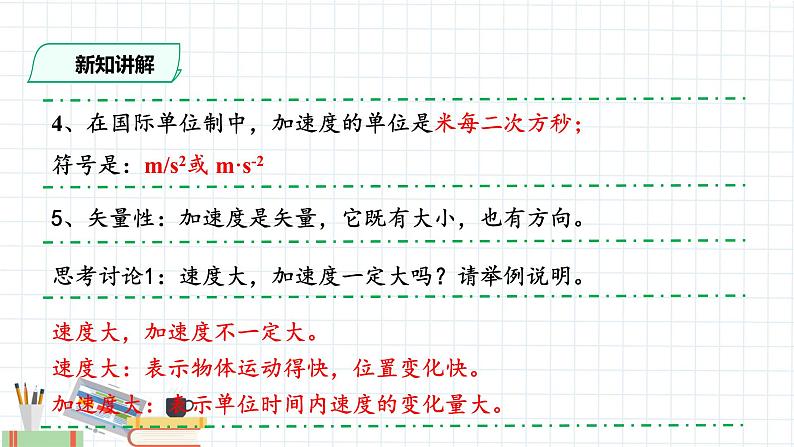 新知讲解
4、在国际单位制中，加速度的单位是米每二次方秒；
符号是：m/s2或 m·s-2
5、矢量性：加速度是矢量，它既有大小，也有方向。
思考讨论1：速度大，加速度一定大吗？请举例说明。
速度大，加速度不一定大。
速度大：表示物体运动得快，位置变化快。
加速度大：表示单位时间内速度的变化量大。